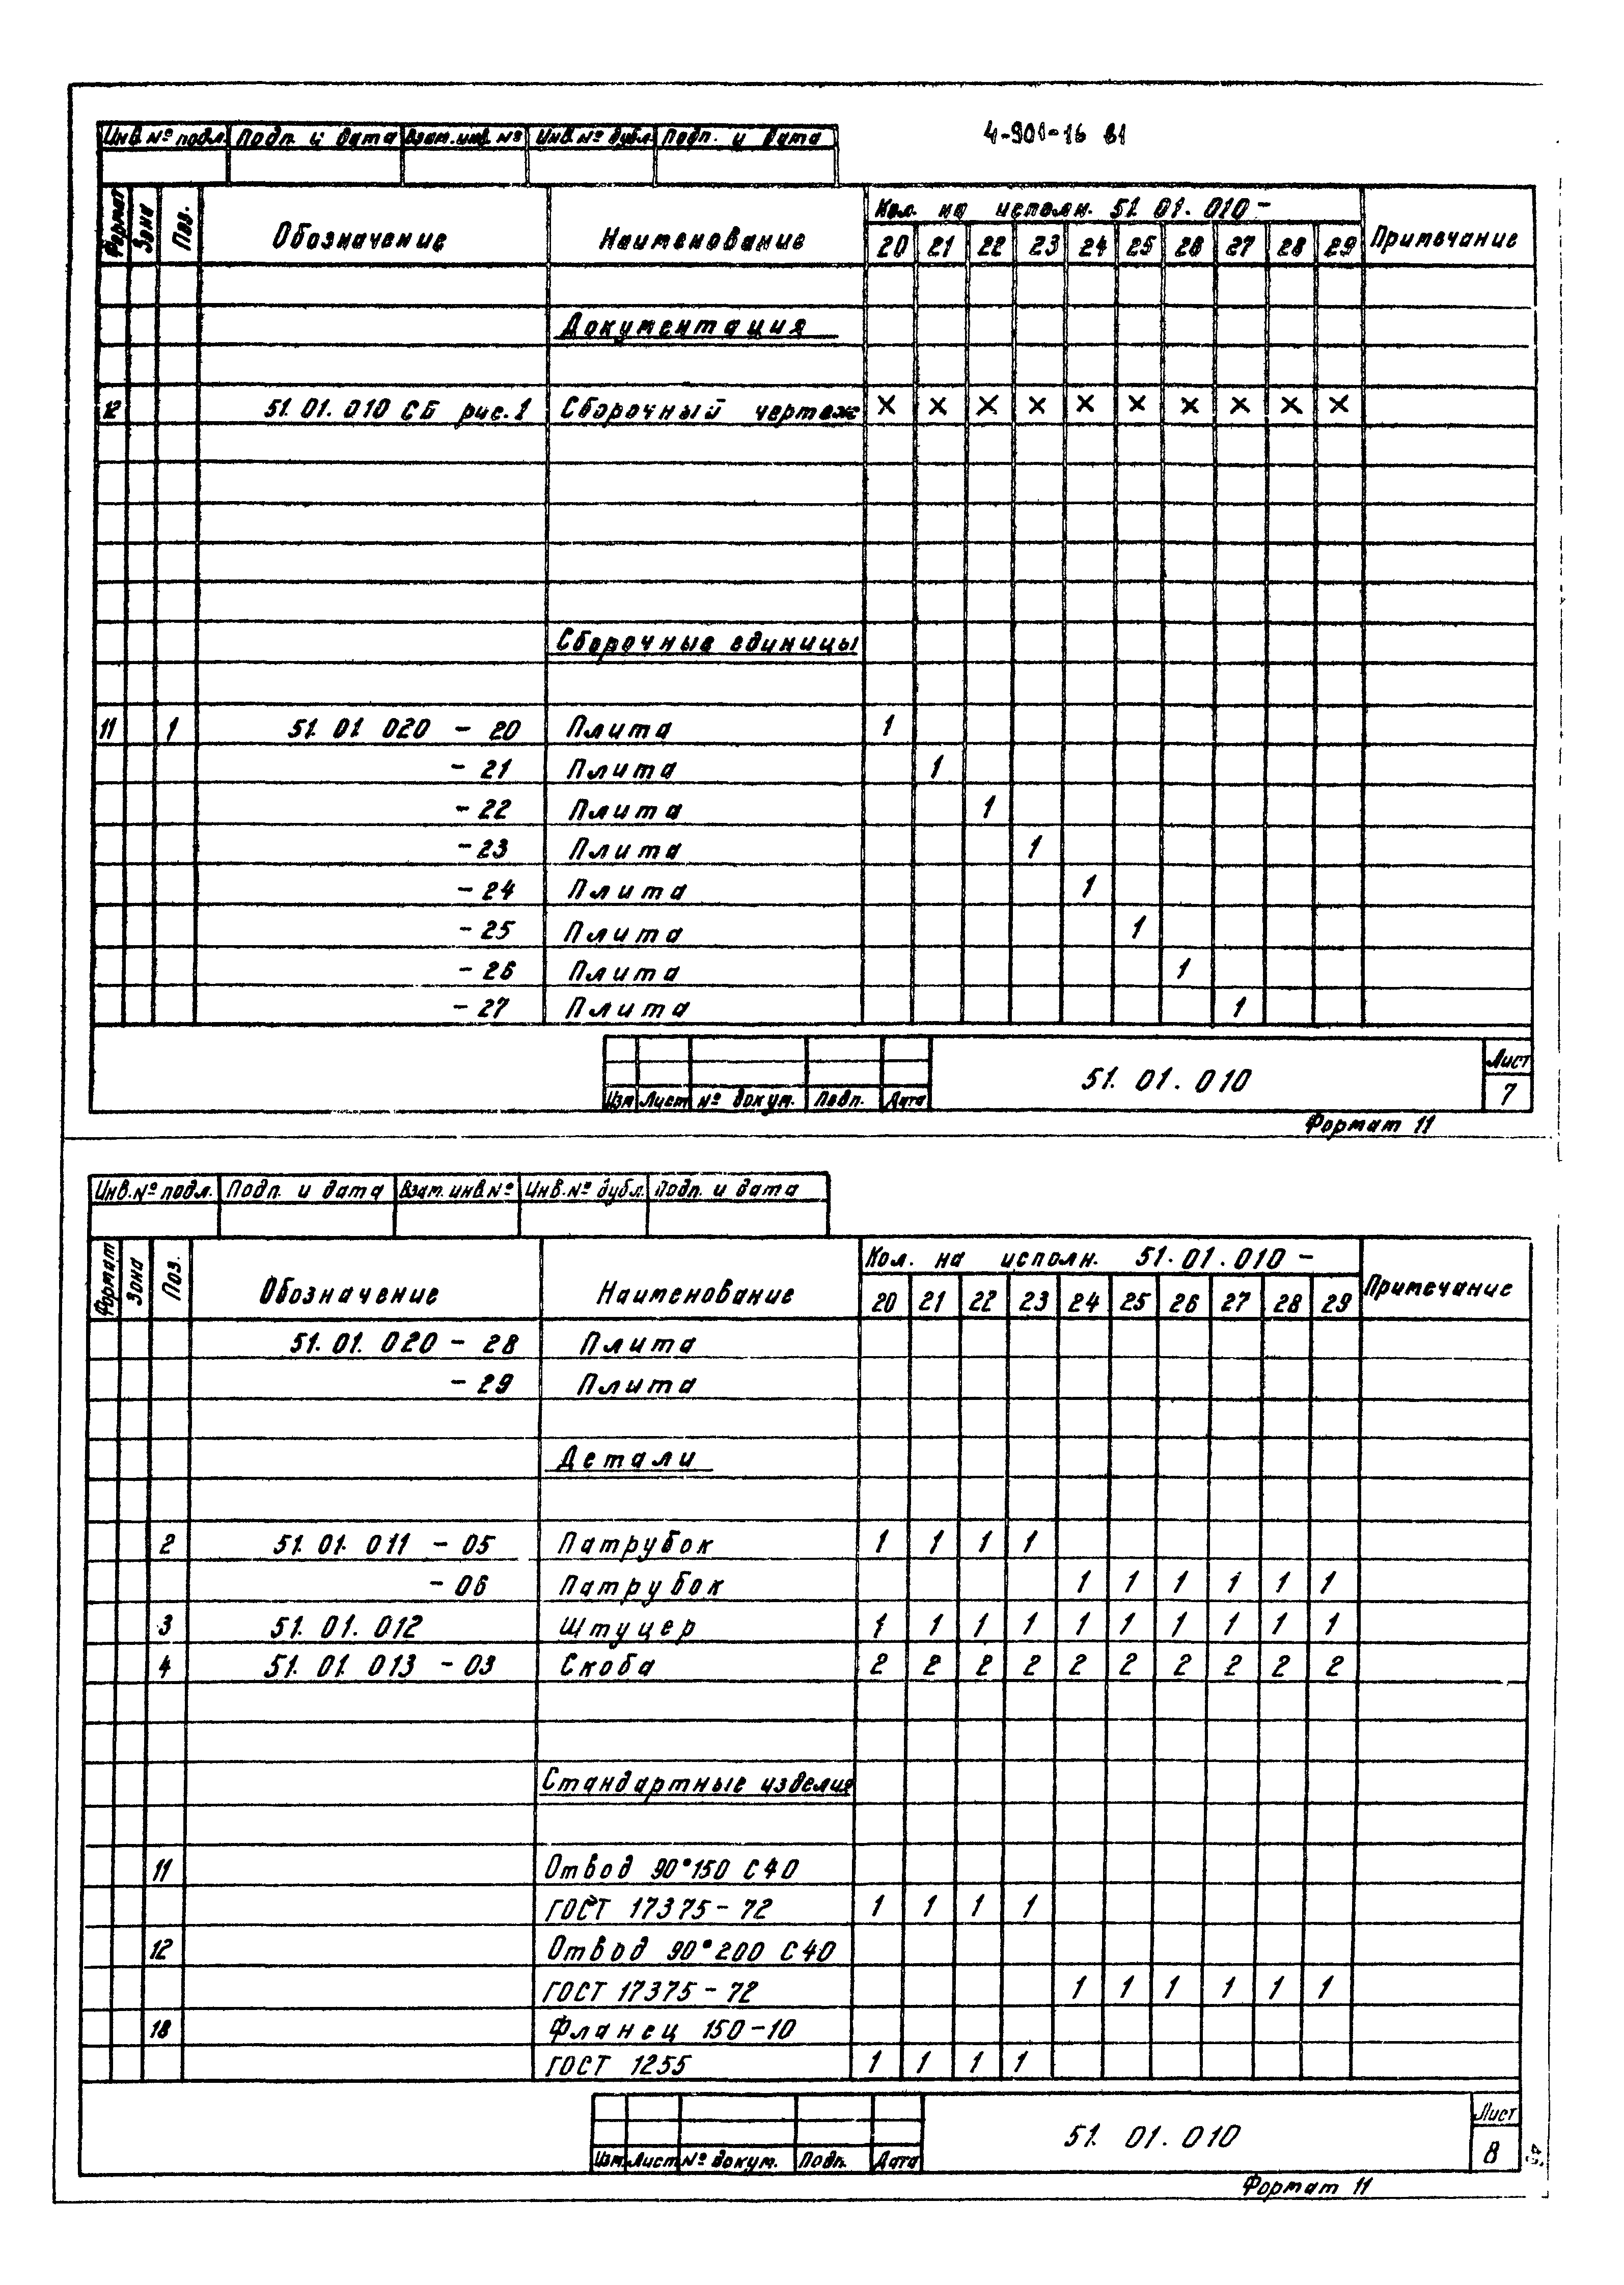 4-901-16 В1
Инв.№ подл. Подп. и дата Взам. инв. № Инв.№ дубл. Подп. и дата
Формат Зона Поз. Обозначение Наименование Кол. на исполн. 51.01.010- Примечание
20 21 22 23 24 25 26 27 28 29
Документация
12 51.01.010 СБ рис.1 Сборочный чертеж × × × × × × × × × ×
Сборочные единицы
11 1 51.01 020 - 20 Плита 1
- 21 Плита 1
- 22 Плита 1
- 23 Плита 1
- 24 Плита 1
- 25 Плита 1
- 26 Плита 1
- 27 Плита 1
Изм Лист № докум. Подп. Дата 51.01.010 Лист 7
Формат 11
Инв.№ подл. Подп. и дата Взам. инв № Инв.№ дубл. Подп. и дата
Формат Зона Поз. Обозначение Наименование Кол. на исполн. 51.01.010 - Примечание
20 21 22 23 24 25 26 27 28 29
51.01.020 - 28 Плита
- 29 Плита
Детали
2 51.01.011 - 05 Патрубок 1 1 1 1
- 06 Патрубок 1 1 1 1 1 1
3 51.01.012 Штуцер 1 1 1 1 1 1 1 1 1 1
4 51.01.013 - 03 Скоба 2 2 2 2 2 2 2 2 2 2
Стандартные изделия
11 Отвод 90°150 С40
ГОСТ 17375-72 1 1 1 1
12 Отвод 90°200 С40
ГОСТ 17375-72 1 1 1 1 1 1
18 Фланец 150-10
ГОСТ 1255 1 1 1 1
Изм. Лист № докум. Подп. Дата 51.01.010 Лист 8
Формат 11